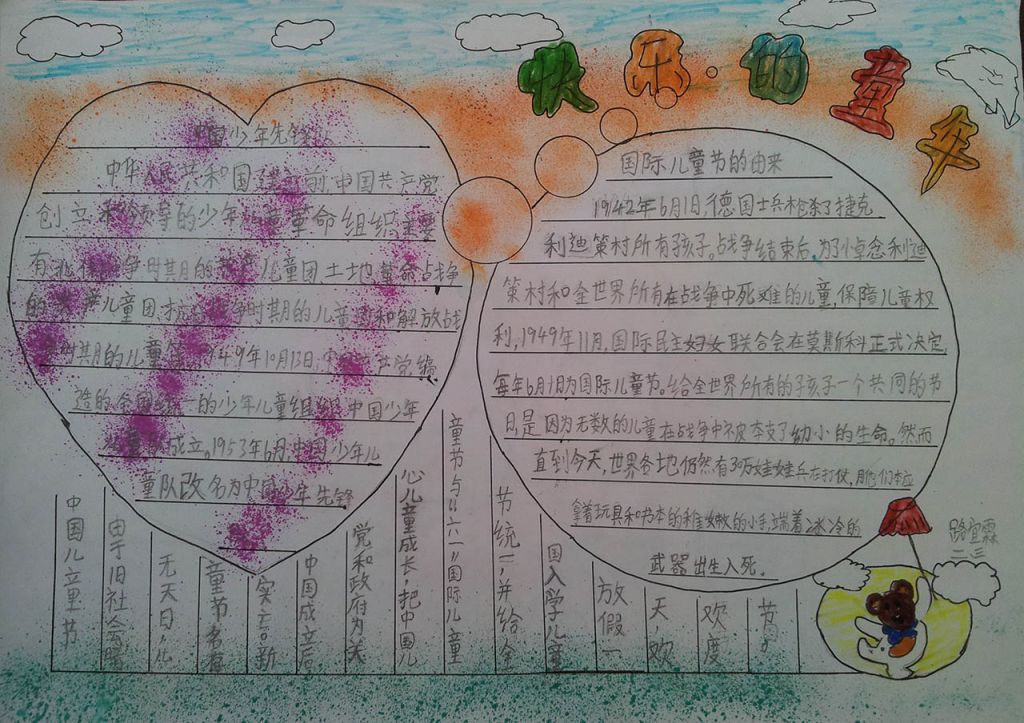 快乐的童年
中国少年先锋
中华人民共和国建立前,中国共产党
创立和领导的少年儿童革命组织主要
有北伐战争时其月的劳产儿童团土地革命战争
的共产儿童团,抗战争时期的儿童团和解放战
争时其月的儿童等。1949年10月13日,中国共产党缔
造的全国统一的少年儿童组织中国少年
儿童队成立。1953年6月,中国少年儿
童队改名为中国少年先锋
国际儿童节的由来
1942年6月1日,德国士兵枪杀了捷克
利迪策村所有孩子。战争结束后,为了小卓念利迪
策村和全世界所有在战争中死难的儿童,保障儿童权
利,1949年11月,国际民主妇女联合会在莫斯科正式决定,
每年6月1日为国际儿童节。给全世界所有的孩子一个共同的节
日,是因为无数的儿童在战争中被夺支了幼小的生命。然而
直到今天,世界各地仍然有30万娃娃兵在打仗,用他们本应
拿着玩具和书本的稚嫩的小手,端着冰冷的
武器出生入死。
中国儿童节
由于旧社会暗
无天日,儿
童节名存
实亡新
中国成立后
党和政府为关
心儿童成长,把中国儿
童节与“六一”国际儿童
节统一,并给全
国入学儿童
放假一
天欢
欢度
节日。
路宜霖
二.三